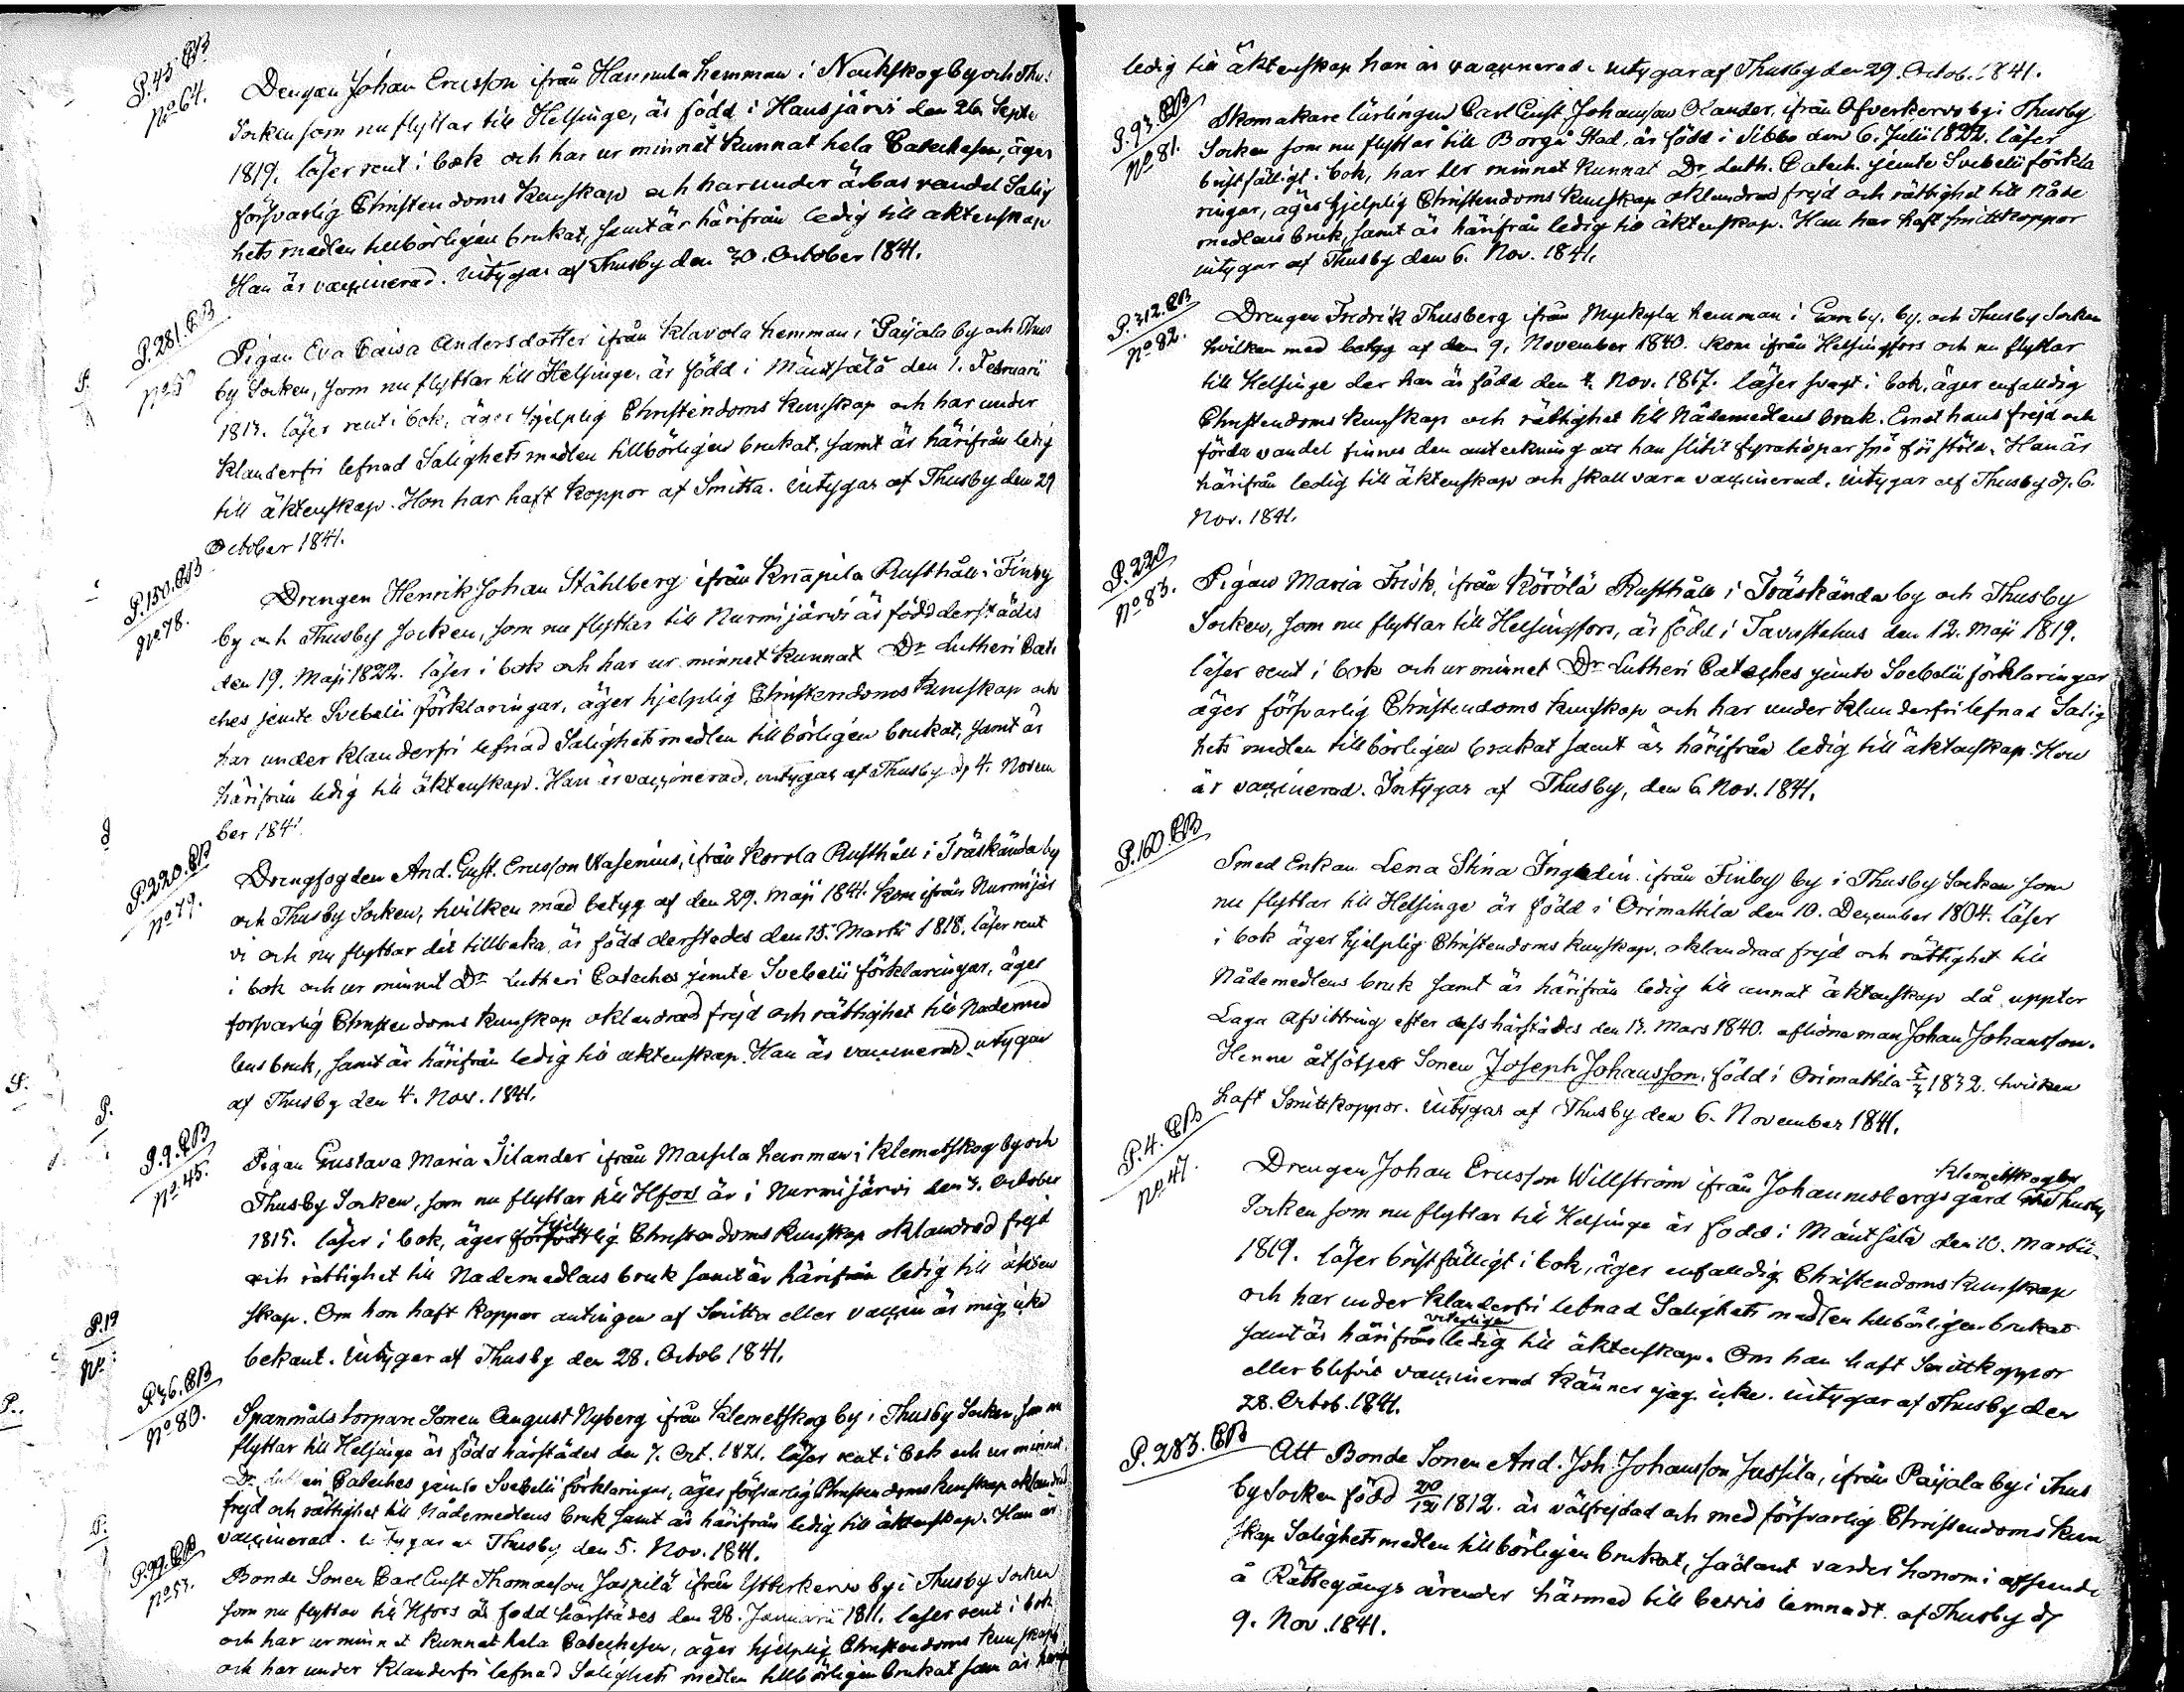 P. 45. CB
No 64.
Drengen Johan Ericsson ifrån Hannula hemman i Nackskog by och Thu:
Socken som nu flyttar till Helsinge, är född i Hausjärvi den 26. Septe
1819. läser rent i bok och har ur minnet kunnat hela Catechesen, äger
försvarlig Christendoms kunskap och har under ärbar vandel Salig
hets medlen tillbörligen brukat, samt är härifrån ledig till äktenskap
Han är vaccinerad. Intygar af Thusby den 30. October 1841.
P. 281. CB
No 5
Pigan Eva Caisa Andersdotter ifrån Klavola hemman i Paijala by och Thus
by Socken, som nu flyttar till Helsinge, är född i Mäntsälä den 1. Februarii
1813. läser rent i bok, äger hjelplig Christendoms kunskap och har under
klanderfri lefnad Salighets medlen tillbörligen brukat, samt är härifrån ledig
till äktenskap. Hon har haft koppor af Smitta. Intygar af Thusby den 29
October 1841.
P. 150. CB
No 78.
Drengen Henrik Johan Ståhlberg ifrån Krapila Rusthåll i Finby
by och Thusby Socken, som nu flyttar till Nurmijärvi är född derstädes
den 19. Maji 1822. läser i bok och har ur minnet kunnat Dr Lutheri Cate
ches jemte Svebelii förklaringar, äger hjelplig Christendoms kunskap och
har under klanderfri lefnad Salighets medlen tillbörligen brukat, samt är
härifrån ledig till äktenskap. Han är vaccinerad, intygar af Thusby d. 4. Novem
ber 1841.
P. 220. CB
No 79.
Drengfogden And. Gust. Ericsson Wasenius, ifrån Korola Rusthåll i Träskända by
och Thusby Socken, hvilken med betyg af den 29. Maji 1841. kom ifrån Nurmijär
vi och nu flyttar dit tillbaka, är född derstädes den 15. Martii 1818, läser rent
i bok och ur minnet Dr Lutheri Cateches jemte Svebelii förklaringar, äger
försvarlig Christendoms kunskap oklandrad frejd och rättighet till Nademed
lens bruk, samt är härifrån ledig till äktenskap. Han är vaccinerad intygar
af Thusby den 4. Nov. 1841.
P. 9. CB
No 45.
Pigan Gustava Maria Silander ifrån Marsila hemman i Klemetskog by och
Thusby Socken, som nu flyttar till Hfors är i Nurmijärvi den 3. October
1815. läser i bok, äger hjelplig Christendoms kunskap oklandrad frejd
och rättighet till Nademedlens bruk samt är härifrån ledig till äkten
skap. Om hon haft koppor antingen af Smitta eller vaccin är mig icke
bekant. Intygar af Thusby den 28. Octob 1841.
P. 36. CB
No 80.
Spanmåls torpare Sonen August Nyberg ifrån Klemetskog by i Thusby Socken, som nu
flyttar till Helsinge är född härstädes den 7. Oct. 1821. läser rent i bok och ur minnet
Dr Lutheri Cateches jemte Svebelii förklaringar, äger försvarlig Christendoms kunskap oklandrad
frejd och rättighet till Nådemedlens bruk samt är härifrån ledig till äktenskap. Han är
vaccinerad. Intygar af Thusby den 5. Nov. 1841.
P. 99. CB
No 57.
Bonde Sonen Carl Gust Thomasson Jaspilä ifrån Ytterkervo by i Thusby Socken
som nu flyttar till Hfors är född härstädes den 28. Januarii 1811. läser rent i bok
och har ur minnet kunnat hela Catechesen, äger hjelplig Christendoms kunskap
och har under klanderfri lefnad Salighets medlen tillbörligen brukat sam är
P.
P.
P. 19
No
P.
ledig till äktenskap han är vaccinerad. intygar af Thusby den 29. Octob. 1841.
P. 93. CB
No 81.
Skomakare lärlingen Carl Gust. Johansson Olander, ifrån Ofverkervo by i Thusby
Socken som nu flyttar till Borgå Stad, är född i Sibbo den 6. Julii 1822. läser
bristfälligt i bok, har ur minnet kunnat Dr Luth. Catech. jemte Svebelii förkla
ringar, äger hjelplig Christendoms kunskap oklandrad frejd och rättighet till nåde
medlens bruk, samt är härifrån ledig till äktenskap. Han har haft smittkoppor
intygar af Thusby den 6. Nov. 1841.
P. 312. CB
No 82.
Drengen Fredrik Thusberg ifrån Myckylä hemman i Gamby. by. och Thusby Socken
hvilken med betyg af den 9. November 1840. kom ifrån Helsingfors och nu flyttar
till Helsinge der han är född den 4. Nov. 1817. läser svagt i bok, äger enfalldig
Christendoms kunskap och rättighet till Nådemedlens bruk. Emot hans frejd och
förda vandel finnes den anteckning att han slitit fyratio par spö för stöld. Han är
härifrån ledig till äktenskap och skall vara vaccinerad. intygar af Thusby d. 6.
Nov. 1841.
P. 220
No 83.
Pigan Maria Frisk, ifrån Körölä Rusthåll i Träskända by och Thusby
Socken, som nu flyttar till Helsingfors, är född i Tavastehus den 12. Maji 1819.
läser rent i bok och ur minnet Dr Lutheri Cateches jemte Svebelii förklaringar
äger försvarlig Christendoms kunskap och har under klanderfri lefnad Salig
hets medlen tillbörligen brukat samt är härifrån ledig till äktenskap. Hon
är vaccinerad. Intygar af Thusby, den 6 Nov. 1841.
P. 160. CB
Smed Enkan Lena Stina Ingelin. ifrån Finby by i Thusby Socken som
nu flyttar till Helsinge är född i Orimattila den 10. December 1804. läser
i bok äger hjelplig Christendoms kunskap, oklandrad frejd och rättighet till
Nådemedlens bruk samt är härifrån ledig till annat äktenskap då uppter
Laga Afvittring efter dess härstädes den 13. Mars 1840. aflidne man Johan Johansson.
Henne åtföljer Sonen Joseph Johansson, född i Orimattila 1832. hvilken
haft Smittkoppor. intygar af Thusby den 6. November 1841.
P. 4. CB
No 47.
Klemetskog by
Drengen Johan Ericsson Willström ifrån Johannesbergs gård Thusby
Socken som nu flyttar till Helsinge är född i Mäntsälä den 10. Martii
1819. läser bristfälligt i bok, äger enfalldig Christendoms kunskap
och har under klanderfri lefnad Salighets medlen tillbörligen brukat
veterligen
samt är härifrån ledig till äktenskap. Om han haft Smittkoppor
eller blifvit vaccinerad känner jag icke. intygar af Thusby den
28. Octob. 1841.
P. 283. CB
Att Bonde Sonen And. Joh. Johansson Jussila, ifrån Paijala by i Thus
by Socken född 20/12 1812. är välfrejdad och med försvarlig Christendoms kun
skap Salighets medlen tillbörligen brukat, sådant varder honom i afseende
å Rättegångs ärender härmed till bevis lemnadt. af Thusby d.
9. Nov. 1841.